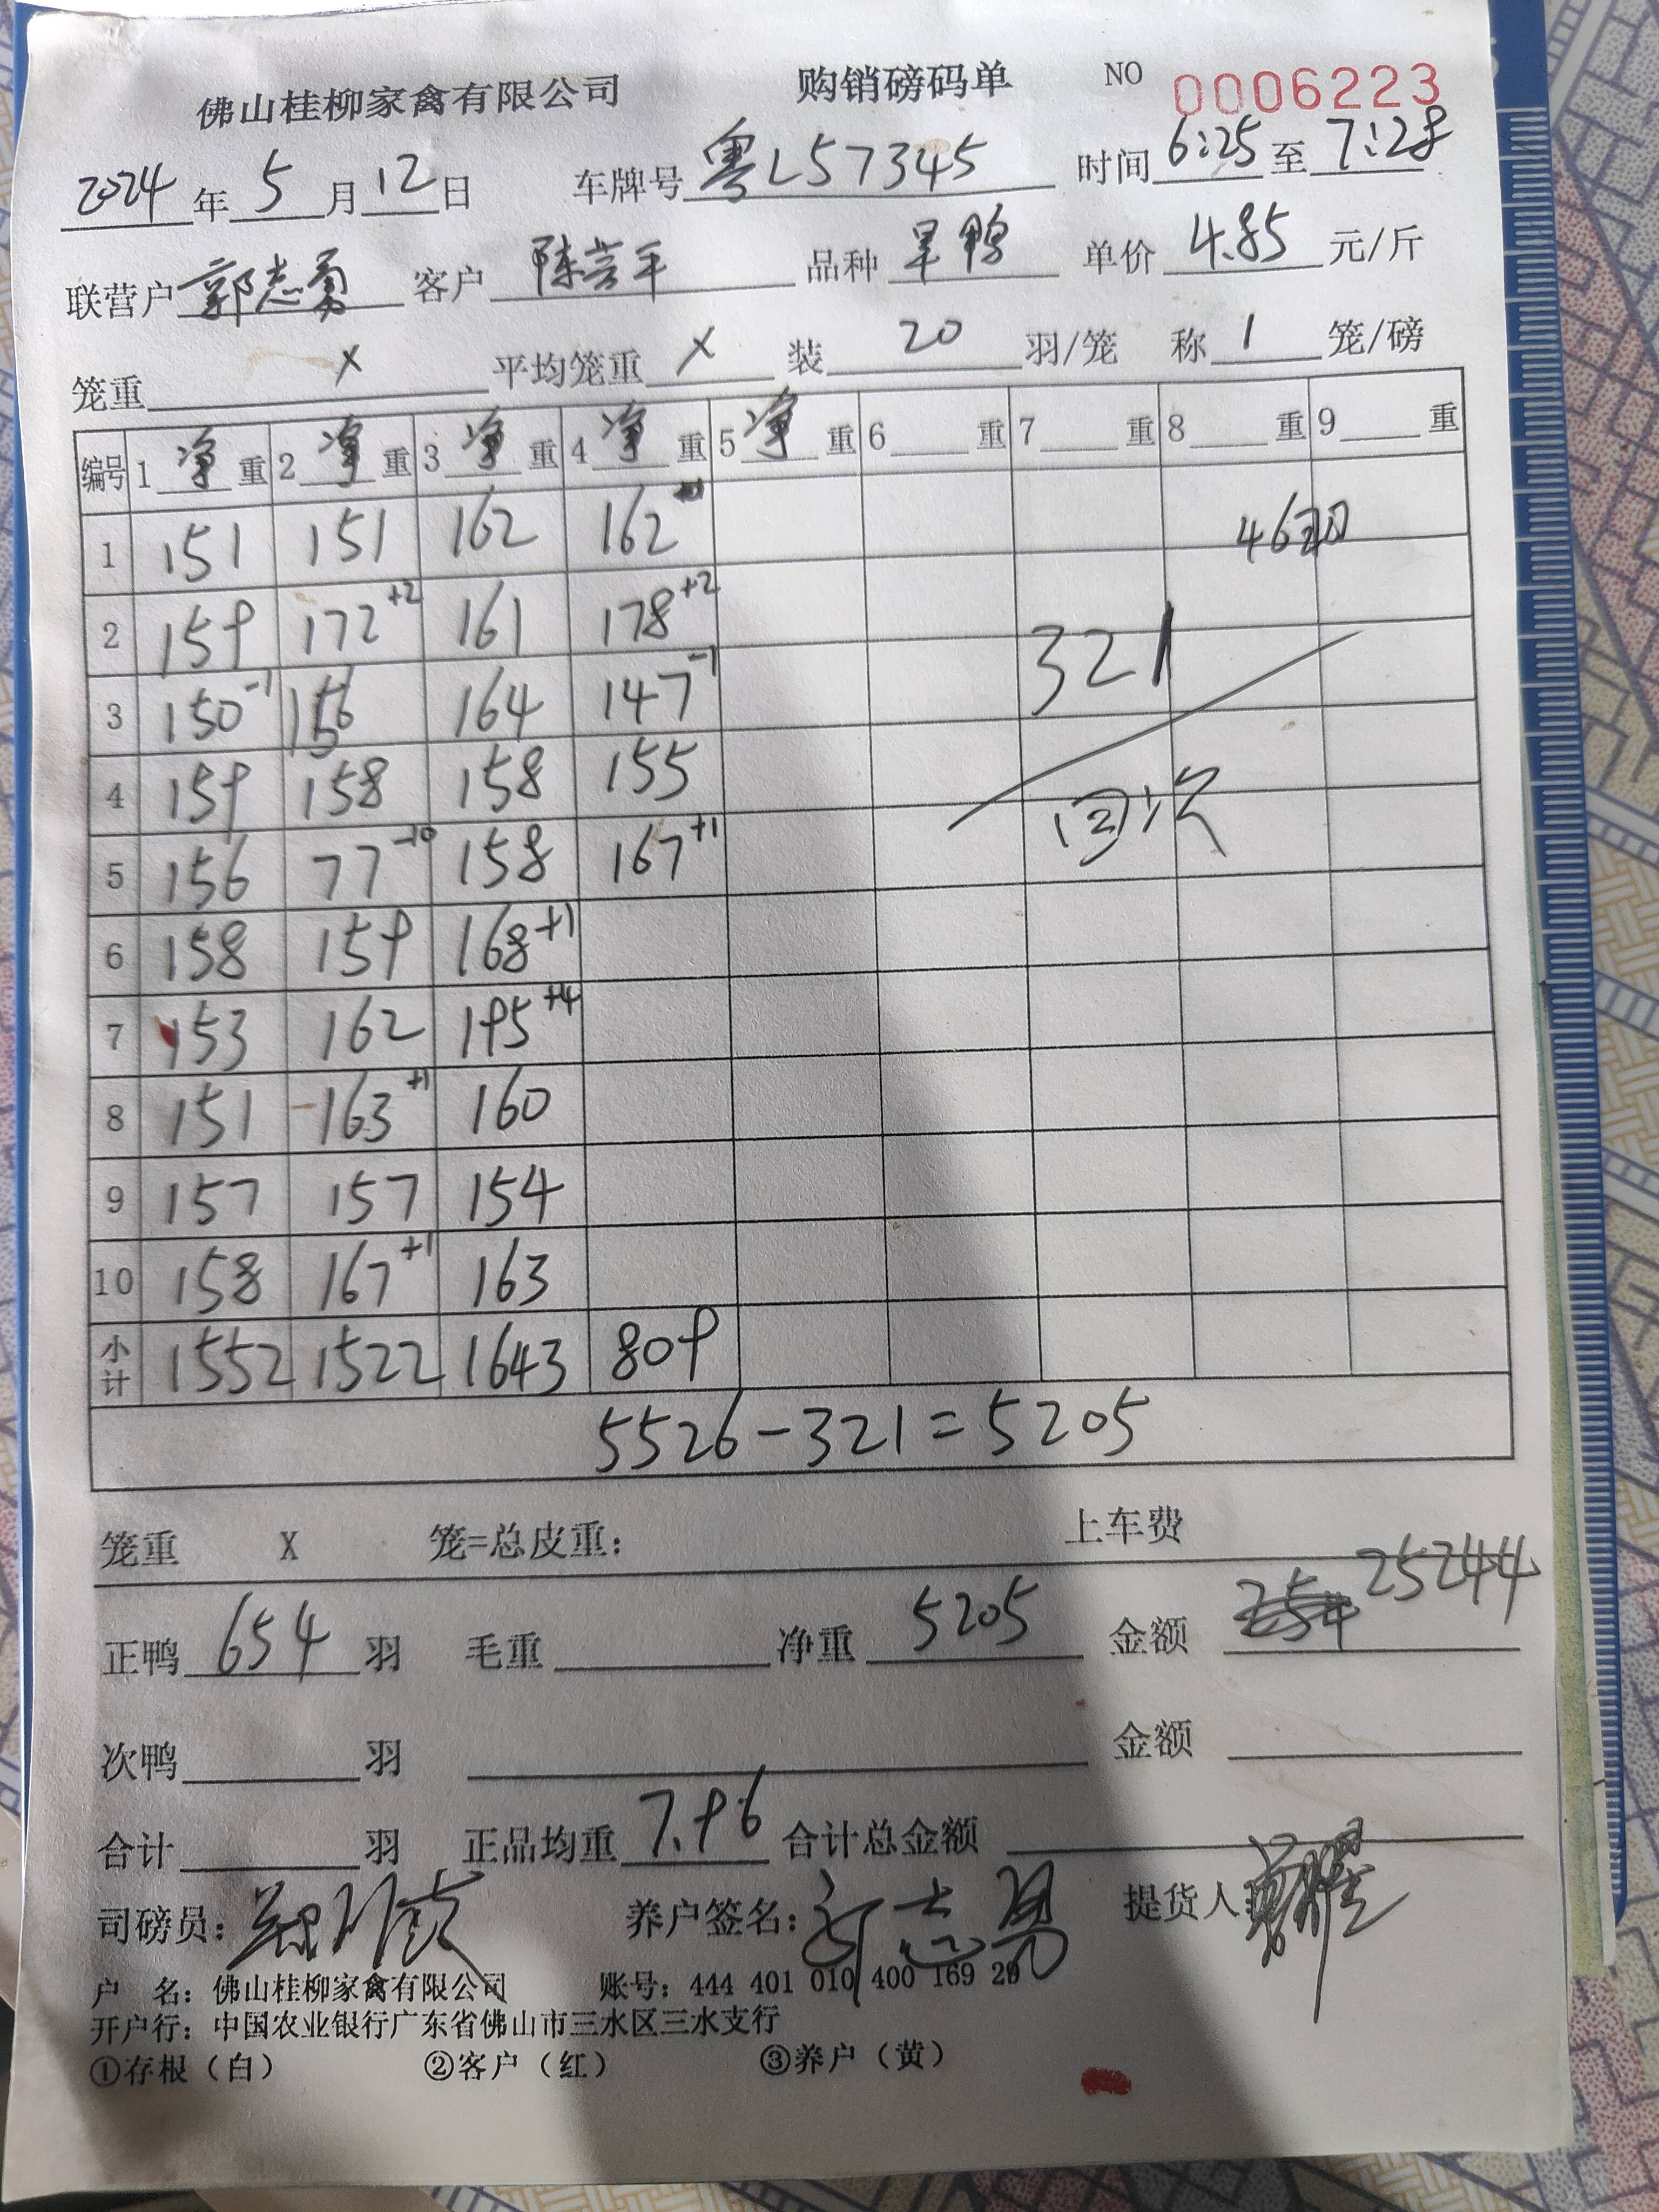 佛山桂柳家禽有限公司 购销磅码单 NO 0006223
2024年5月12日 车牌号 粤L57345 时间 6:25 至 7:28
联营户 郭志勇 客户 陈芸平 品种 旱鸭 单价 4.85 元/斤
笼重 X 平均笼重 X 装 20 羽/笼 称 1 笼/磅
编号 1 净 重 2 净 重 3 净 重 4 净 重 5 净 重 6 重 7 重 8 重 9 重
1 151 151 162 162
2 159 172+2 161 178+2 321
3 150-1 156 164 147-1
4 159 158 158 155 回次
5 156 77-10 158 167+1
6 158 159 168+1
7 153 162 195+4
8 151 163+1 160
9 157 157 154
10 158 167+1 163
小计 1552 1522 1643 809
5526-321=5205
笼重 X 笼=总皮重: 上车费
正鸭 654 羽 毛重 净重 5205 金额 25244
次鸭 羽 金额
合计 羽 正品均重 7.96 合计总金额
司磅员: 养户签名: 郭志勇 提货人:
户 名: 佛山桂柳家禽有限公司 账号: 444 401 010 400 169 29
开户行: 中国农业银行广东省佛山市三水区三水支行
①存根（白） ②客户（红） ③养户（黄）